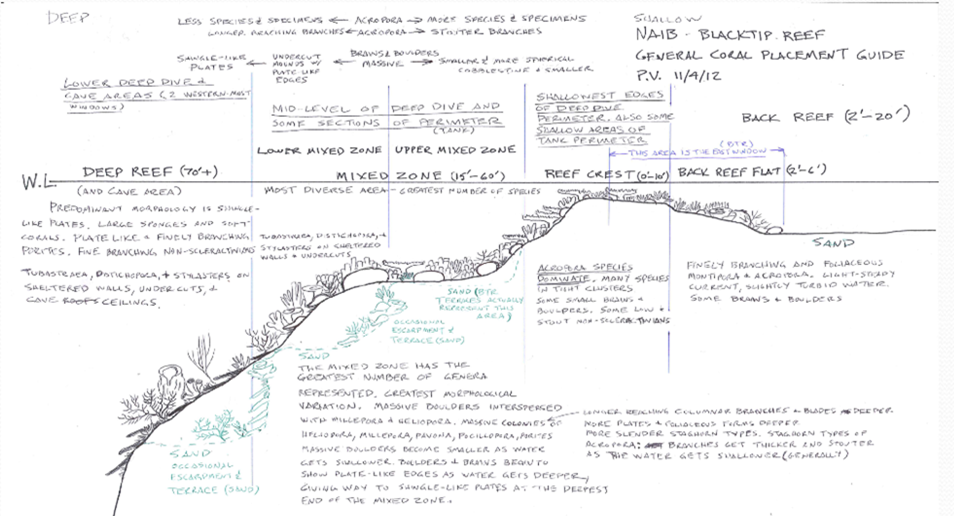 DEEP
LESS SPECIES & SPECIMENS ← ACROPORA → MORE SPECIES & SPECIMENS
LONGER REACHING BRANCHES ← ACROPORA → STOUTER BRANCHES
SHALLOW
NAIB - BLACKTIP REEF
GENERAL CORAL PLACEMENT GUIDE
P.V. 11/4/12
SHINGLE-LIKE PLATES
←
UNDERCUT
MOUNDS W/
PLATE-LIKE
EDGES
← BRAINS & BOULDERS
MASSIVE →
SMALLER & MORE SPHERICAL
COBBLESTONE & SMALLER
LOWER DEEP DIVE &
CAVE AREAS (2 WESTERN-MOST
WINDOWS)
MID-LEVEL OF DEEP DIVE AND
SOME SECTIONS OF PERIMETER
(TANK)
SHALLOWEST EDGES
OF DEEP DIVE
PERIMETER. ALSO SOME
SHALLOW AREAS OF
TANK PERIMETER
BACK REEF (2'-20')
(BTR)
THIS AREA IS THE EAST WINDOW
LOWER MIXED ZONE
UPPER MIXED ZONE
W.L.
DEEP REEF (70'+)
MIXED ZONE (15'-60')
REEF CREST (0'-10')
BACK REEF FLAT (2'-6')
(AND CAVE AREA)
MOST DIVERSE AREA - GREATEST NUMBER OF SPECIES
PREDOMINANT MORPHOLOGY IS SHINGLE-
LIKE PLATES. LARGE SPONGES AND SOFT
CORALS. PLATE LIKE & FINELY BRANCHING
PORITES. FINE BRANCHING NON-SCLERACTINIANS
TUBASTRAEA, DISTICHOPORA, & STYLASTERS ON
SHELTERED WALLS, UNDERCUTS, &
CAVE ROOFS CEILINGS.
TUBASTRAEA, DISTICHOPORA, &
STYLASTERS ON SHELTERED
WALLS & UNDERCUTS
SAND
SAND (BTR
TERRACES ACTUALLY
REPRESENT THIS
AREA)
OCCASIONAL
ESCARPMENT &
TERRACE (SAND)
ACROPORA SPECIES
DOMINATE, MANY SPECIES
IN TIGHT CLUSTERS
SOME SMALL BRAINS &
BOULDERS. SOME LOW &
STOUT NON-SCLERACTINIANS
FINELY BRANCHING AND FOLIACEOUS
MONTIPORA & ACROPORA. LIGHT-STEADY
CURRENT, SLIGHTLY TURBID WATER.
SOME BRAINS & BOULDERS
SAND
THE MIXED ZONE HAS THE
GREATEST NUMBER OF GENERA
REPRESENTED. GREATEST MORPHOLOGICAL
VARIATION. MASSIVE BOULDERS INTERSPERSED
WITH MILLEPORA & HELIOPORA. MASSIVE COLONIES OF
HELIOPORA, MILLEPORA, PAVONA, POCILLOPORA, PORITES
MASSIVE BOULDERS BECOME SMALLER AS WATER
GETS SHALLOWER. BOULDERS & BRAINS BEGIN TO
SHOW PLATE-LIKE EDGES AS WATER GETS DEEPER,
GIVING WAY TO SHINGLE-LIKE PLATES AT THE DEEPEST
END OF THE MIXED ZONE.
LONGER REACHING COLUMNAR BRANCHES & BLADES DEEPER.
MORE PLATES & FOLIACEOUS FORMS DEEPER.
MORE SLENDER STAGHORN TYPES. STAGHORN TYPES OF
ACROPORA: BRANCHES GET THICKER AND STOUTER
AS THE WATER GETS SHALLOWER (GENERALLY)
SAND
OCCASIONAL
ESCARPMENT &
TERRACE (SAND)